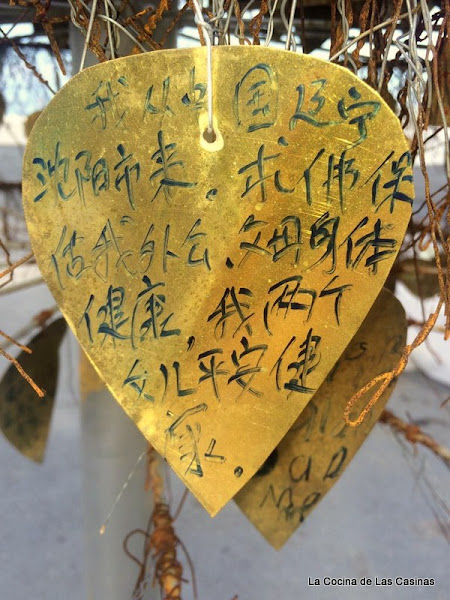 我从中国辽宁
沈阳市来，求佛保
佑我外公、父母身体
健康，我两个
女儿平安健
康。
La Cocina de Las Casinas